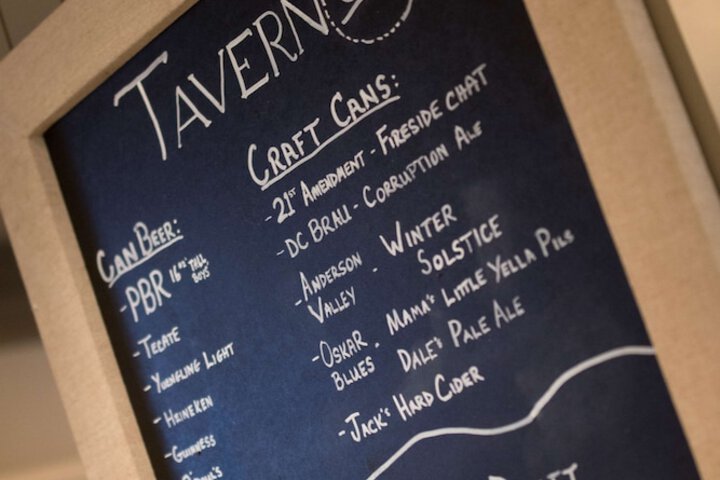 TAVERN
CAN BEER:
-PBR 16oz TALL BOYS
-TECATE
-YUENGLING LIGHT
-HEINEKEN
-GUINNESS
CRAFT CANS:
-21ST AMENDMENT - FIRESIDE CHAT
-DC BRAU - CORRUPTION ALE
-ANDERSON VALLEY - WINTER SOLSTICE
-OSKAR BLUES - MAMA'S LITTLE YELLA PILS
DALE'S PALE ALE
-JACK'S HARD CIDER